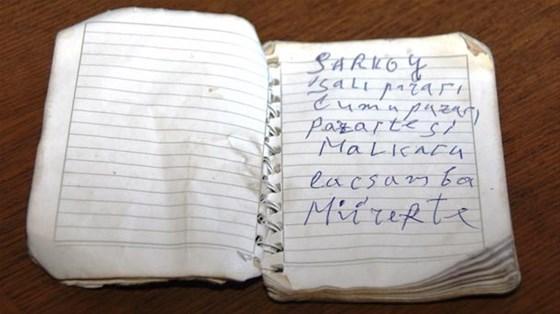 ŞARKOY
salı pazarı
Cuma pazarı
pazartesi
Malkara
carsamba
Mürefte